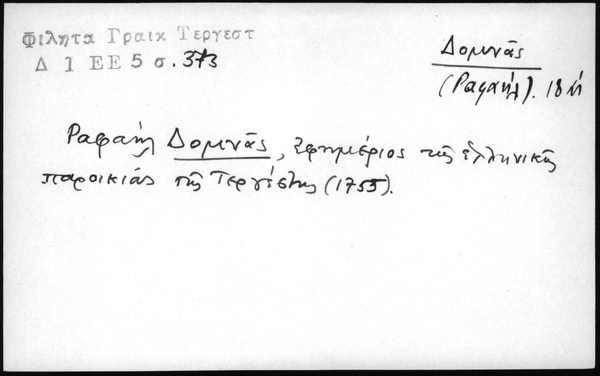 Φιλητα Γραικ Τεργεστ
Δ Ι ΕΕ 5 σ. 373
Δομνᾶς
(Ραφαήλ). 18
Ραφαήλ Δομνᾶς, ἐφημέριος τῆς ἑλληνικῆς
παροικίας τῆς Τεργέστης (1755).